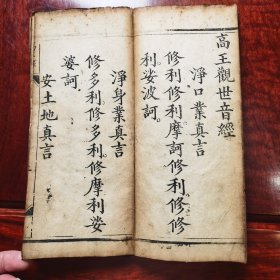 高王觀世音經
淨口業真言
修利修利摩訶修利修修
利娑波訶
淨身業真言
修多利修多利修摩利娑
婆訶
安土地真言